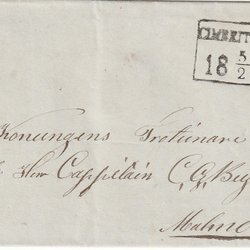 CIMBRIT
18 5/2
Konungens Trotienare
Herr Cappitain C. G. Bey
Malmö